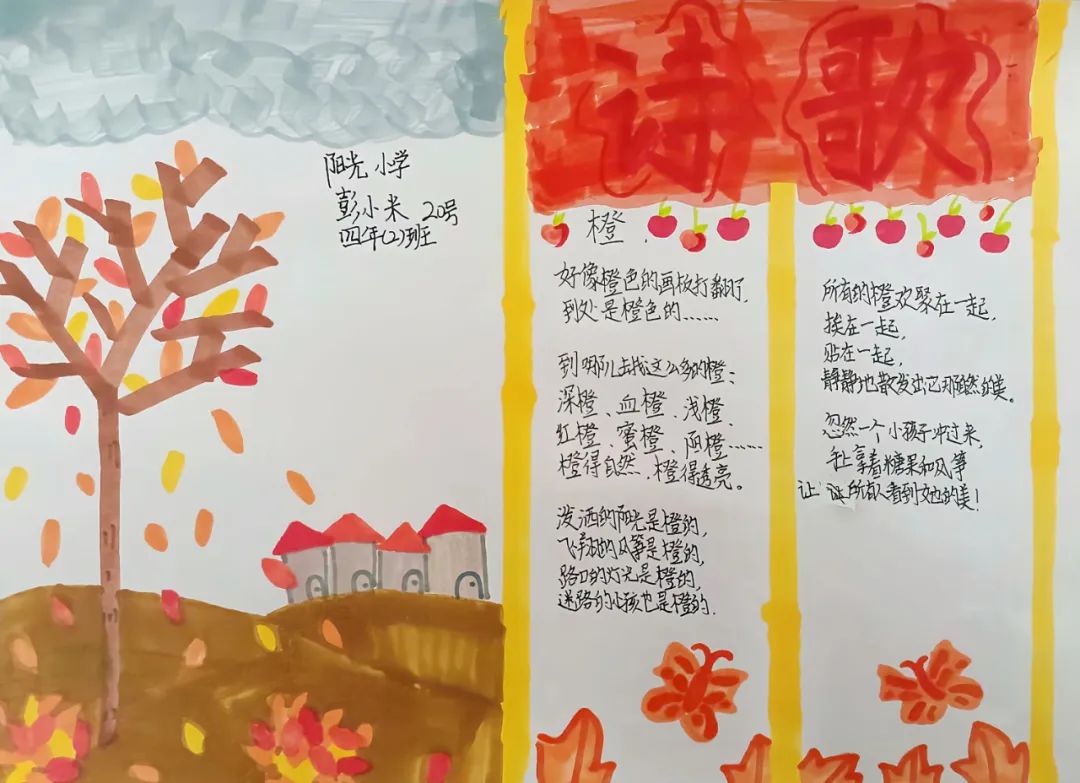 诗歌
阳光小学
彭小米 20号
四年(2)班
橙
好像橙色的画板打翻了,
到处是橙色的……
到哪儿去找这么多的橙:
深橙、血橙、浅橙、
红橙、蜜橙、阳橙……
橙得自然,橙得透亮。
泼洒的阳光是橙的,
飞翔的风筝是橙的,
路口的灯光是橙的,
迷路的小孩也是橙的.
所有的橙欢聚在一起,
挨在一起,
贴在一起,
静静地散发出它那自然的美。
忽然一个小孩子冲过来,
拿着糖果和风筝
让所有人看到她的美!